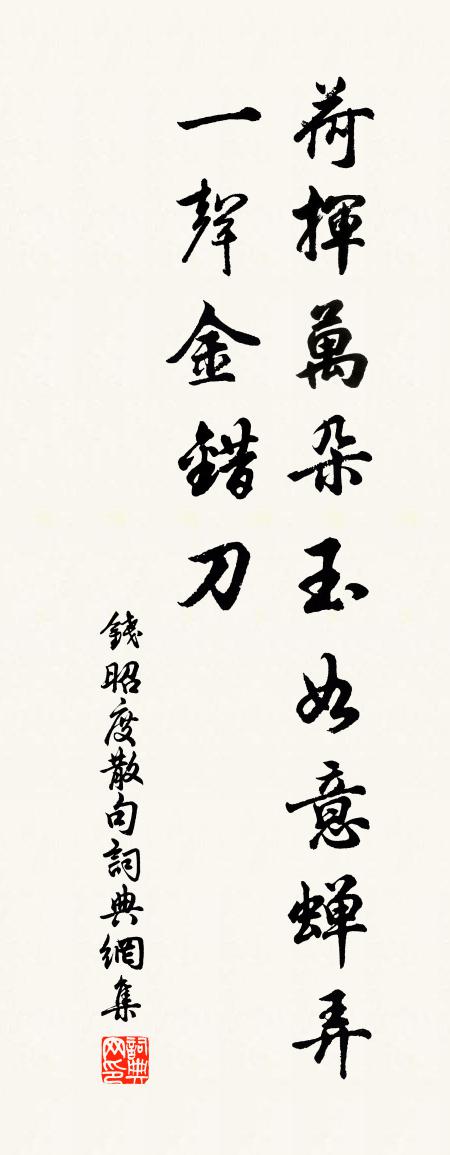 荷揮萬朵玉如意蟬弄
一聲金錯刀
錢昭度散句詞典網集
詞典网印